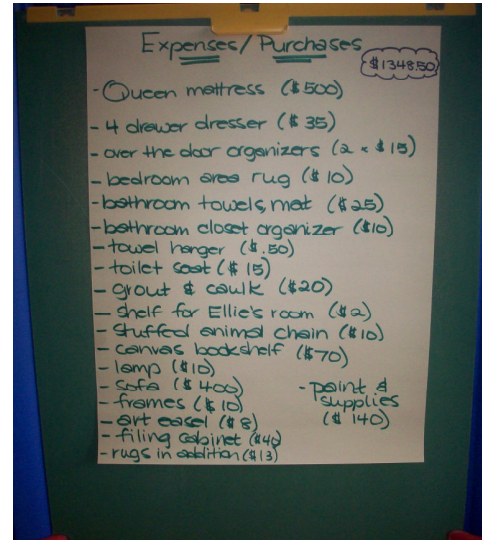 Expenses/Purchases
$1348.50
- Queen mattress ($500)
- 4 drawer dresser ($35)
- over the door organizers (2 x $15)
- bedroom area rug ($10)
- bathroom towels, mat ($25)
- bathroom closet organizer ($10)
- towel hanger ($.50)
- toilet seat ($15)
- grout & caulk ($20)
- shelf for Ellie's room ($2)
- stuffed animal chain ($10)
- canvas bookshelf ($70)
- lamp ($10)
- sofa ($400)
- frames ($10)
- art easel ($8)
- filing cabinet ($40)
- rugs in addition ($13)
- paint &
supplies
($140)